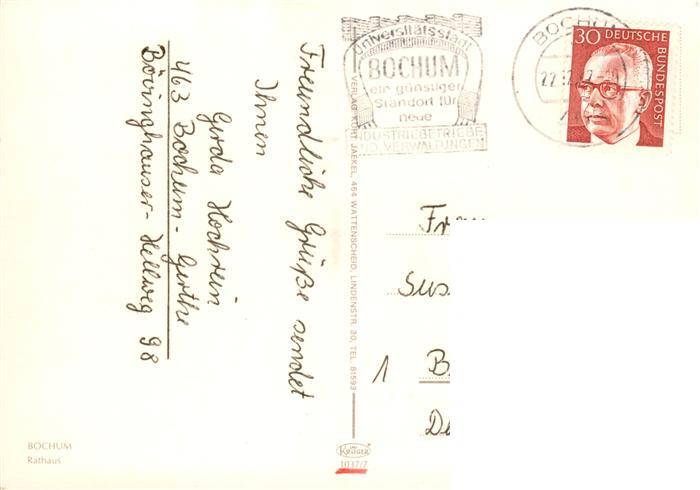 Freundliche Grüße sendet
Ihnen
Gerda Hochrein
463 Bochum-Gerthe
Bövinghauser-Hellweg 98
Universitätsstadt
BOCHUM
ein günstiger
Standort für
neue
INDUSTRIEBETRIEBE
UND VERWALTUNGEN
BOCHUM
30 DEUTSCHE
BUNDESPOST
VERLAG KURT JAEKEL, 464 WATTENSCHEID, LINDENSTR. 30, TEL. 81593
Sus
1 B
De
BOCHUM
Rathaus
KRÜGER
1037/7